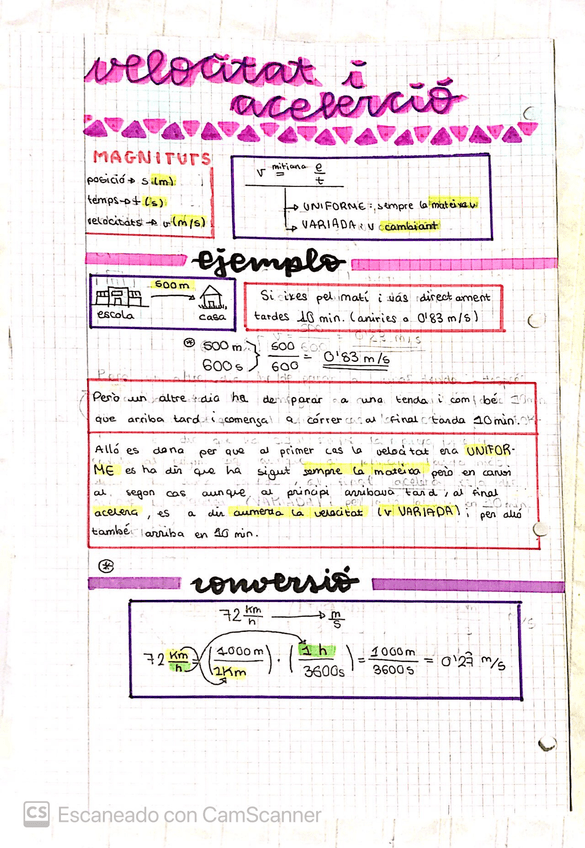 velocitat i
acelerció
MAGNITUTS
posició → s (m)
temps → t (s)
velocitats → v (m/s)
v mitjana = e/t
→ UNIFORME: sempre la mateixa v
→ VARIADA: v cambiant
ejemplo
500m
escola casa
Si ixes pel matí i vas directament
tardes 10 min. (aniries a 0'83 m/s)
* 500 m } 500/600 = 0'83 m/s
600 s
Però un altre dia ha de parar a una tenda i com bé
que arriba tard i comença a córrer al final tarda 10 min.
Alló es dona per que al primer cas la velocitat era UNIFOR-
ME es ha dir que ha sigut sempre la mateixa però en canvi
al segon cas aunque al principi arribava tard, al final
acelera, es a dir aumenta la velocitat (v VARIADA) i per alló
també arriba en 10 min.
*
conversió
72 km/h → m/s
72 km/h = (1000 m/1Km) · (1 h/3600s) = 1000m/3600s = 0'27 m/s
CS Escaneado con CamScanner